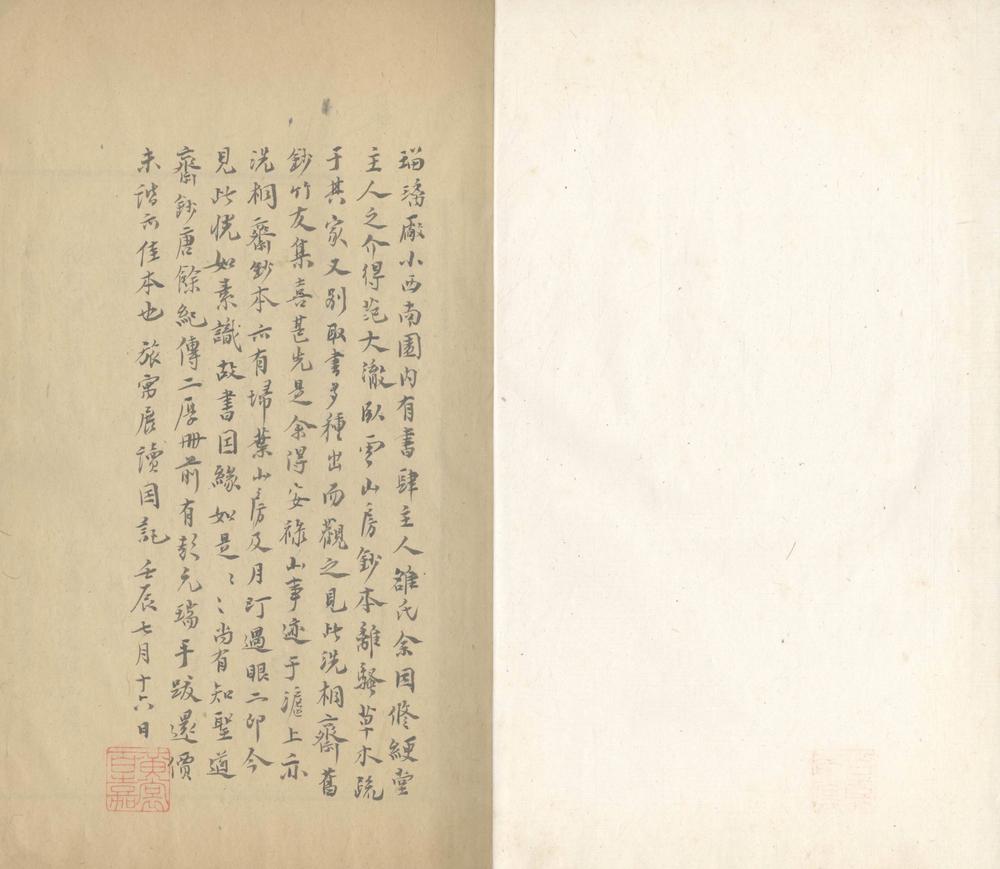 瑠璃厰小西南園内有書肆主人雒氏余因修綆堂
主人之介得范大澈臥雲山房鈔本離騷草木疏
于其家又別取書多種出而觀之見此洗桐齋舊
鈔竹友集喜甚先是余得安祿山事迹于滬上亦
洗桐齋鈔本亦有埽葉山房及月汀過眼二印今
見此恍如素識故書因緣如是〻〻尚有知聖道
齋鈔唐餘紀傳二厚冊前有彭元瑞手跋還價
未諧亦佳本也 旅窗展讀因記 壬辰七月十六日
黄裳
百嘉